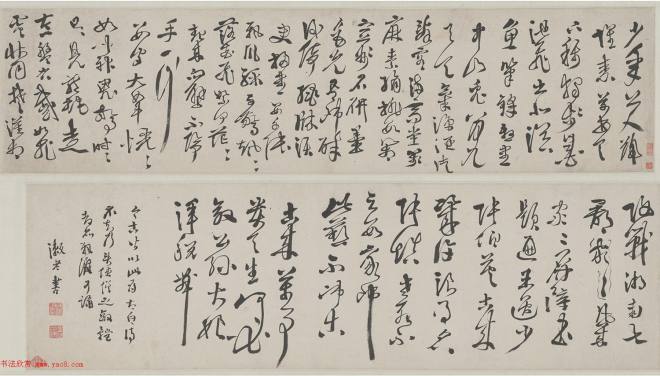 少年上人號
懷素草書天
下稱獨步墨
池飛出北溟
魚筆鋒殺盡
中山兔八月九
月天氣涼酒徒
詞客滿高堂箋
麻素絹排數廂
宣州石硯墨
色光吾師醉
後倚繩床須
臾掃盡數千張
飄風驟雨驚颯颯
落花飛雪何茫茫
起來向壁不停
手一行
數字大如斗恍恍
如聞神鬼驚時時
只見龍蛇走
左盤右蹙如
電狀同楚漢相
攻戰湖南七
郡凡幾家
家家屏障書
題遍王逸少
張伯英古來
幾許浪得名
張顛老死不
足數我師
此藝不師古
古來萬事
貴天生何必要
公孫大娘
渾脫舞
書
书法欣赏 www.yac8.com